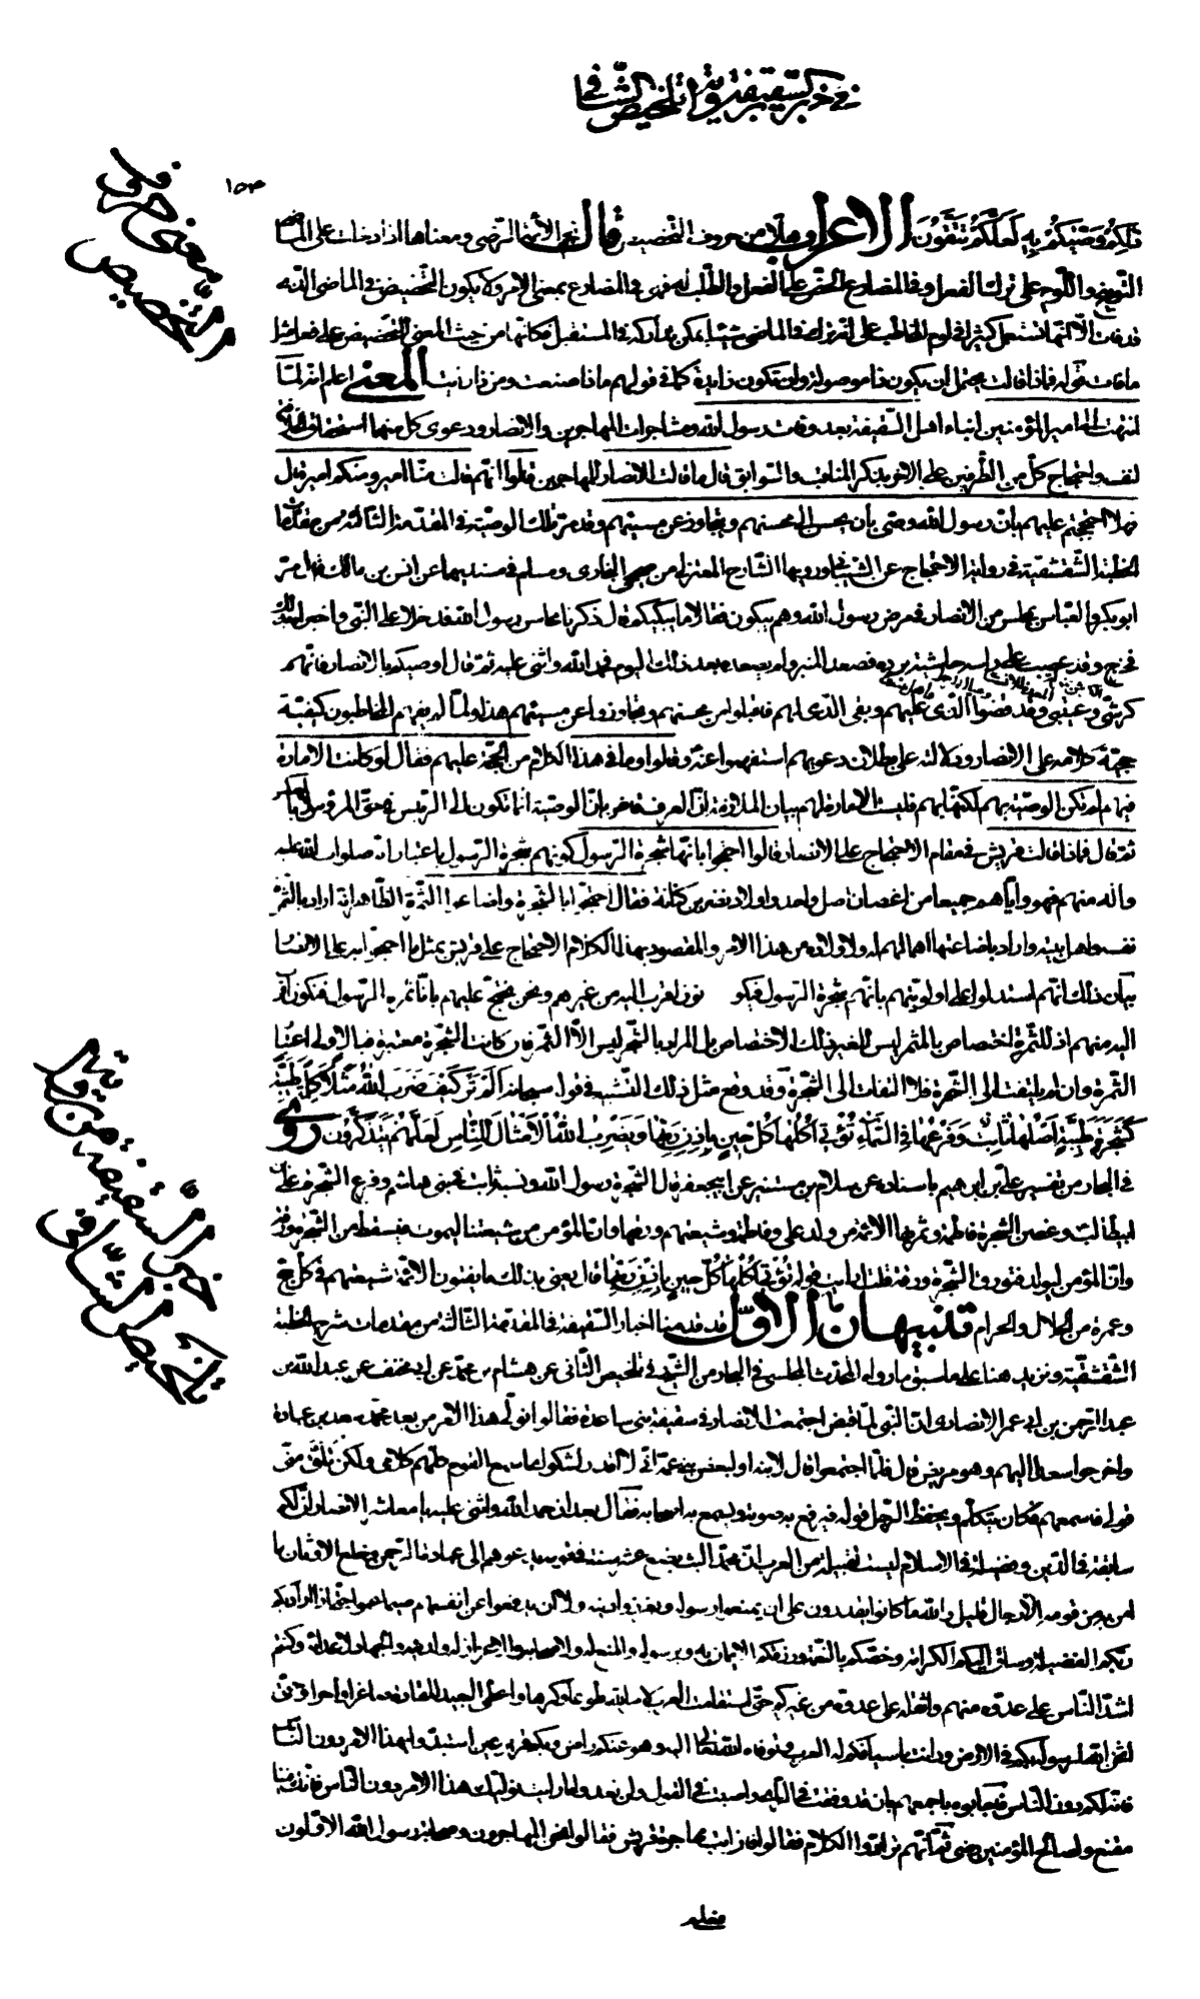 في خبر السقيفة برواية تلخيص الشافي
١٥٣
معنى حروف
التحضيض
ذلكم وصيكم به لعلكم تتقون الاعراب وهلا من حروف التحضيض قال نجم الأئمة الرضي ومعناها اذا دخلت على الماضي
التوبيخ واللوم على ترك الفعل وفي المضارع الحض على الفعل والطلب له فهي في المضارع بمعنى الامر ولا يكون التحضيض في الماضي الذي
قد فات الا انها تستعمل كثيرا في لوم المخاطب على انه ترك في الماضي شيئا يمكن تداركه في المستقبل فكانها من حيث المعنى للتحضيض على فعل مثل
ما فات قوله فماذا قالت يحتمل ان يكون ذا موصولة وان تكون زايدة كما في قولهم ماذا صنعت ومن ذا رايت المعنى اعلم انه لما
انتهت الى امير المؤمنين انباء اهل السقيفة بعد وفات رسول الله ومشاجرات المهاجرين والانصار ودعوى كل منهما استحقاق الخلافة
لنفسه واحتجاج كل من الطرفين على الاخر بذكر المناقب والسوابق قال ما قالت الانصار للمهاجرين قالوا انهم قالت منا امير ومنكم امير قال
فهلا احتججتم عليهم بان رسول الله وصى بان يحسن الى محسنهم ويتجاوز عن مسيئهم وقد مر تلك الوصية في المقدمة الثالثة من مقدمات
الخطبة الشقشقية في رواية الاحتجاج عن الشيباني ورويها الشارح المعتزلي من صحيحي البخاري ومسلم في مسنديهما عن انس بن مالك قال مر
ابو بكر والعباس بمجلس من الانصار في مرض رسول الله وهم يبكون فقالا ما يبكيكم قالوا ذكرنا محاسن رسول الله فدخلا على النبي واخبراه بذلك
فخرج وقد عصب على راسه حاشية برده فصعد المنبر ولم يصعده بعد ذلك اليوم فحمد الله واثنى عليه ثم قال اوصيكم بالانصار فانهم
كرشي وعيبتي وقد قضوا الذي عليهم وبقي الذي لهم فاقبلوا من محسنهم وتجاوزوا عن مسيئهم هذا ولما لم يفهم المخاطبون كيفية
حجية كلامه على الانصار ودلالته على بطلان دعويهم استفهموا عنه وقالوا وما في هذا الكلام من الحجة عليهم فقال لو كانت الامارة
فيهم لم تكن الوصية بهم لكنها بهم فليست الامارة لهم بيان الملازمة ان العرف قاض بان الوصية انما تكون الى الرئيس في حق المرؤس لا بالعكس
ثم قال فماذا قالت قريش في مقام الاحتجاج على الانصار قالوا احتجوا بانها شجرة الرسول كونهم شجرة الرسول باعتبار انه صلوات الله عليه
واله منهم فهو واياهم جميعا من اغصان اصل واحد واولاد نضر بن كنانة فقال احتجوا بالشجرة واضاعوا الثمرة الظاهر انه اراد بالثمرة
نفسه واهل بيته واراد باضاعتها اهمالهم له ولاولاده من هذا الامر والمقصود بهذا الكلام الاحتجاج على قريش بمثل ما احتجوا به على الانصار
بيان ذلك انهم استدلوا على اولويتهم بانهم شجرة الرسول فيكونون اقرب اليه من غيرهم ونحن نحتج عليهم بانا ثمرة الرسول فنكون اقرب
اليه منهم اذ للثمرة اختصاص بالمثمر ليس لغيرها ذلك الاختصاص بل المراد بالشجر ليس الا الثمر فان كانت الشجرة معتبرة فبالاولى اعتبار
الثمرة وان لم يلتفت الى الثمرة فلا التفات الى الشجرة وقد وقع مثل ذلك التشبيه في قوله سبحانه الم تر كيف ضرب الله مثلا كلمة طيبة
كشجرة طيبة اصلها ثابت وفرعها في السماء تؤتي اكلها كل حين باذن ربها ويضرب الله الامثال للناس لعلهم يتذكرون روى
في البحار من تفسير علي بن ابراهيم باسناده عن سلام بن مستنير عن ابي جعفر قال الشجرة رسول الله ونسبه ثابت في بني هاشم وفرع الشجرة علي بن
ابيطالب وغصن الشجرة فاطمة وثمرها الائمة من ولد علي وفاطمة وشيعتهم ورقها وان المؤمن من شيعتنا ليموت فيسقط من الشجرة ورقة
وان المؤمن ليولد فتورق الشجرة ورقة قلت ارايت قوله تؤتي اكلها كل حين باذن ربها قال يعني بذلك ما يفتون الائمة شيعتهم في كل حج
وعمرة من الحلال والحرام تنبيهان الاول قد قدمنا اخبار السقيفة في المقدمة الثالثة من مقدمات شرح الخطبة
خبر السقيفة من رواية
تلخيص الشافي
الشقشقية ونزيد هنا على ما سبق ما رواه المحدث المجلسي في البحار من الشيخ في تلخيص الشافي عن هشام بن محمد عن ابي مخنف عن عبد الله بن
عبد الرحمن بن ابي عمرة الانصاري ان النبي لما قبض اجتمعت الانصار في سقيفة بني ساعدة فقالوا نولي هذا الامر من بعد محمد سعد بن عبادة
واخرجوا سعدا اليهم وهو مريض قال فلما اجتمعوا قال لابنه او لبعض بني عمه اني لا اقدر لشكواي ان اسمع القوم كلهم كلامي ولكن تلق مني
قولي فاسمعهم فكان يتكلم ويحفظ الرجل قوله فيرفع به صوته ويسمع به اصحابه فقال بعد ان حمد الله واثنى عليه يا معاشر الانصار ان لكم
سابقة في الدين وفضيلة في الاسلام ليست لقبيلة من العرب ان محمدا لبث بضع عشرة سنة في قومه يدعوهم الى عبادة الرحمن وخلع الاوثان فما
امن به من قومه الا رجال قليل والله ما كانوا يقدرون على ان يمنعوا رسوله ويعزوا دينه ولا ان يدفعوا عن انفسهم ضيما عموا به حتى اذا اراد بكم
ربكم الفضيلة وساق اليكم الكرامة وخصكم بالنعمة ورزقكم الايمان به وبرسوله والمنع له ولاصحابه والاعزاز له ولدينه والجهاد لاعدائه وكنتم
اشد الناس على عدوه منهم واثقله على عدوه من غيركم حتى استقامت العرب لامر الله طوعا وكرها واعطى البعيد المقادة صاغرا داخرا حتى
اثخن الله لرسوله بكم في الارض ودانت باسيافكم له العرب وتوفاه الله تعالى اليه وهو عنكم راض وبكم قرير عين استبدوا بهذا الامر دون الناس
فانه لكم دون الناس فاجابوه باجمعهم بان قد وفقت في الراي واصبت في القول ولن نعدو ما رايت نوليك هذا الامر دون الناس فانك فينا
مقنع ولصالح المؤمنين رضى ثم انهم ترادوا الكلام فقالوا فان ابت مهاجرة قريش فقالوا نحن المهاجرون وصحابة رسول الله الاولون